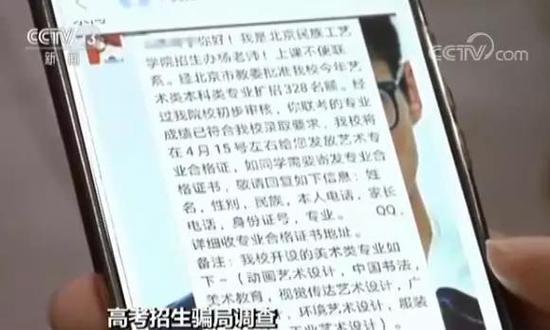 CCTV-13
新闻
CCTV.com
你好！我是北京民族工艺
学院招生办杨老师！上课不便联
系。经北京市教委批准我校今年艺
术类本科类专业扩招328名额。经
过我院校初步审核，你联考的专业
成绩已符合我校录取要求，我校将
在4月15号左右给您发放艺术专
业合格证，如同学需要寄发专业合
格证书，敬请回复如下信息：姓
名，性别，民族，本人电话，家长
电话，身份证号，专业。 QQ，
详细收专业合格证书地址。
备注：我校开设的美术类专业如
下－（动画艺术设计，中国书法，
美术教育，视觉传达艺术设计，广
，环境艺术设计，服装
工业艺术设计）
高考招生骗局调查